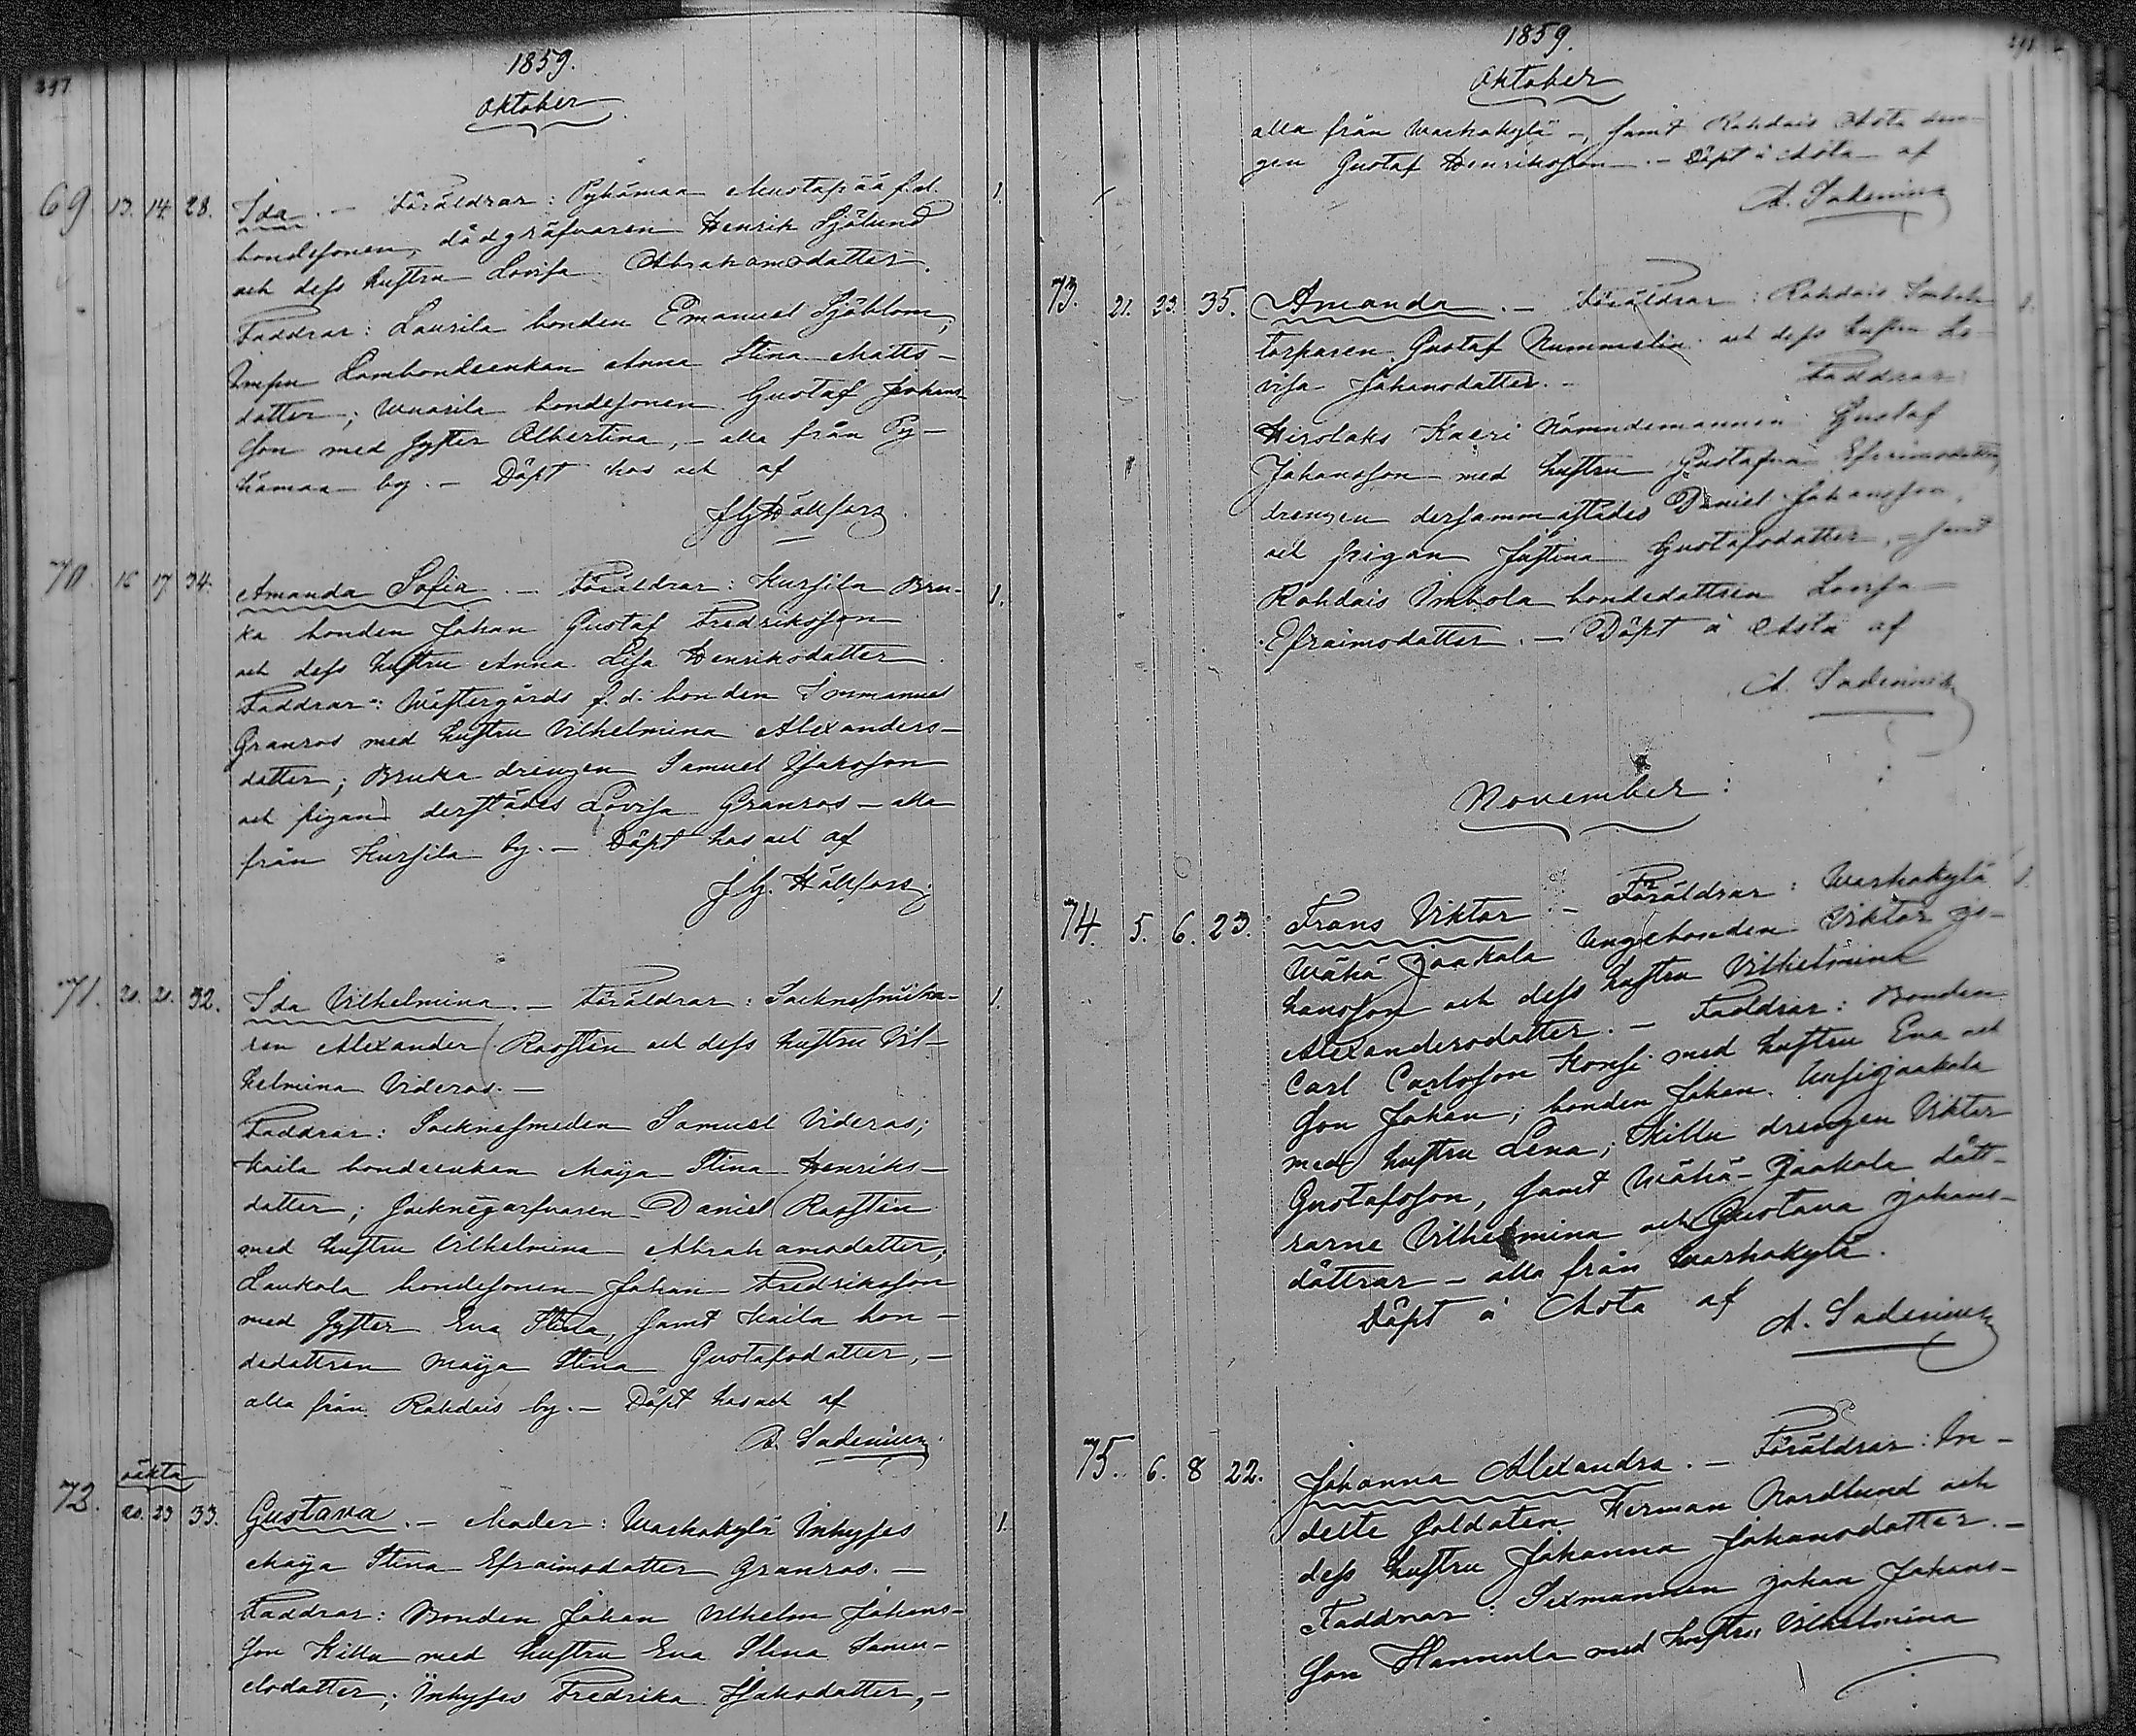 297
1859.
Oktober
69. 13. 14. 28. Ida. — Föräldrar: Pyhämaa Mustapää f.d. 1.
bondesonen, dödgräfvaren Henrik Sjölund
och dess hustru Lovisa Abrahamsdotter.
Faddrar: Laurila bonden Emanuel Sjöblom;
Impu Lambondeenkan Anna Stina Matts-
dotter; Wuorila bondesonen Gustaf Johans-
son med syster Albertina, — alla från Py-
hämaa by. — Döpt hos och af
J G Hällfors
70. 16 17. 34. Amanda Sofia. — Föräldrar: Kursila Bru- 1.
ka bonden Johan Gustaf Fredriksson
och dess hustru Anna Lisa Henriksdotter
Faddrar: Wästergårds f.d. bonden Immanuel
Granros med hustru Vilhelmina Alexanders-
dotter; Bruka drengen Samuel Isaksson
och pigan derstädes Lovisa Granros — alla
från Kursila by. — Döpt hos och af
J G. Hällfors
71. 20. 21. 32. Ida Vilhelmina. — Föräldrar: Socknesnika- 1.
ren Alexander Rostin och dess hustru Vil-
helmina Videros. —
Faddrar: Socknesmeden Samuel Videros;
Kaila bondeenkan Maija Stina Henriks-
dotter; Socknegarfvaren Daniel Rostin
med hustru Vilhelmina Abrahamsdotter;
Laukola bondesonen Johan Fredriksson
med syster Eva Stina, samt Kaila bon-
dedottren Maija Stina Gustafsdotter, —
alla från Rahdais by. — Döpt hos och af
A. Sadenius
oäkta
72. 20. 23 33. Gustava. — Moder: Warhokylä Inhyses 1.
Maija Stina Efraimsdotter Granros. —
Faddrar: Bonden Johan Vilhelm Johans-
son Killu med hustru Eva Stina Samu-
elsdotter; Inhyses Fredrika Isaksdotter, —
1859.
Oktober
alla från Warhokylä —, samt Rahdais Asta dren-
gen Gustaf Henriksson. — Döpt å Asta af
A. Sadenius
73. 21. 23. 35. Amanda. — Föräldrar: Rahdais Imbola 1.
torparen Gustaf Nummelin och dess hustru Lo-
visa Johansdotter. — Faddrar:
Hirslaks Kaeri Nämndemannen Gustaf
Johansson med hustru Gustafva Efraimsdotter,
drengen dersammastädes Daniel Johansson,
och pigan Justina Gustafsdotter, — samt
Rahdais Imbola bondedottren Lovisa
Efraimsdotter. — Döpt å Asta af
A. Sadenius
November:
74. 5. 6. 23. Frans Viktor. — Föräldrar: Warhokylä 1.
Wähä Jaakola Ungebonden Viktor Jo-
hansson och dess hustru Vilhelmina
Alexandersdotter. — Faddrar: Bonden
Carl Carlsson Konsi med hustru Eva och
Son Johan; bonden Johan Uusijaakola
med hustru Lena; Killu drengen Viktor
Gustafsson, samt Wähä-Jaakola dött-
rarne Vilhelmina och Gustava Johans-
döttrar — alla från Warhokylä.
Döpt å Asta af
A. Sadenius
75. 6. 8 22. Johanna Alexandra. — Föräldrar: In-
delte Soldaten Herman Nordlund och
dess hustru Johanna Johansdotter. —
Faddrar: Sexmannen Johan Johans-
son Hannula med hustru Vilhelmina